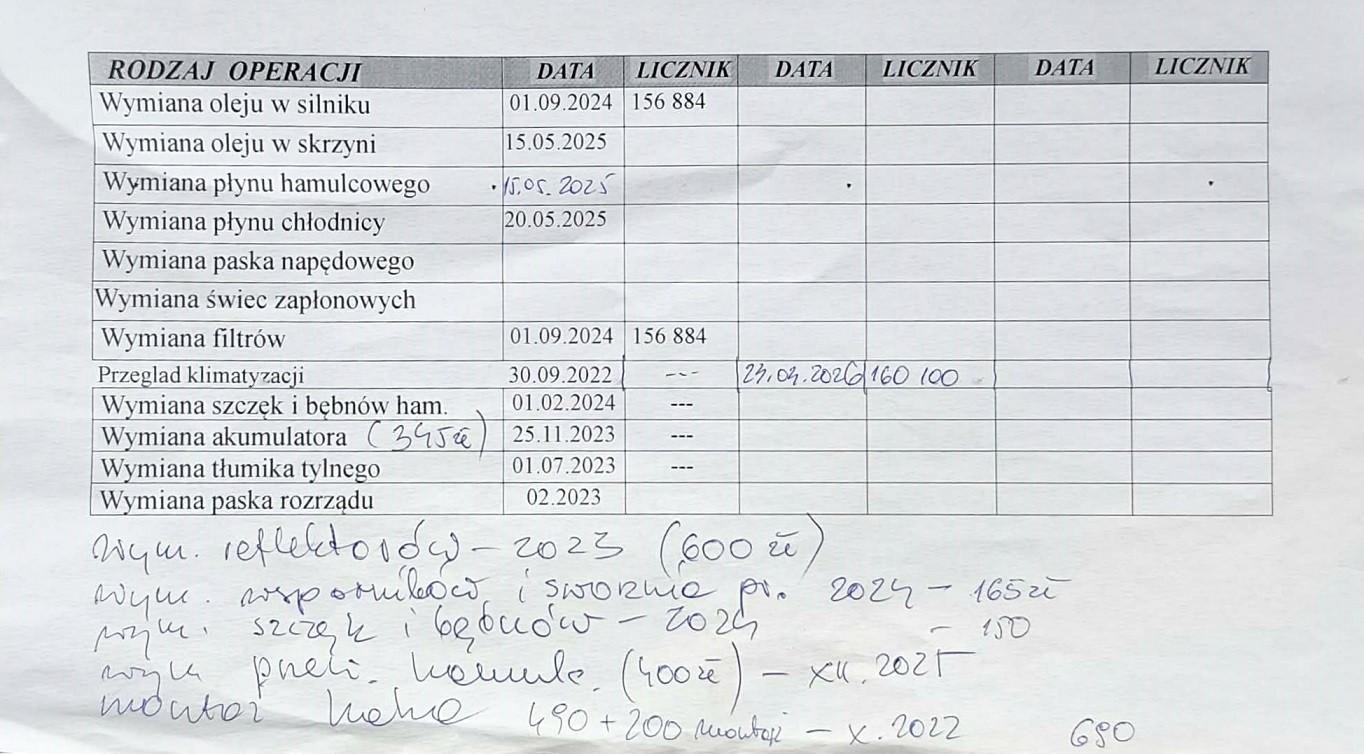 RODZAJ OPERACJI DATA LICZNIK DATA LICZNIK DATA LICZNIK
Wymiana oleju w silniku 01.09.2024 156 884
Wymiana oleju w skrzyni 15.05.2025
Wymiana płynu hamulcowego 15.05.2025
Wymiana płynu chłodnicy 20.05.2025
Wymiana paska napędowego
Wymiana świec zapłonowych
Wymiana filtrów 01.09.2024 156 884
Przeglad klimatyzacji 30.09.2022 --- 2026 160 100
Wymiana szczęk i bębnów ham. 01.02.2024 ---
Wymiana akumulatora (345zł) 25.11.2023 ---
Wymiana tłumika tylnego 01.07.2023 ---
Wymiana paska rozrządu 02.2023
wym. reflektorów - 2023 (600 zł)
wym. wsporników i sworznia pr. 2024 - 165 zł
wym. szczęk i bębnów - 2024 - 150
wym (400 zł) - XII. 2025
montaż haka 490 + 200 montaż - X. 2022 690